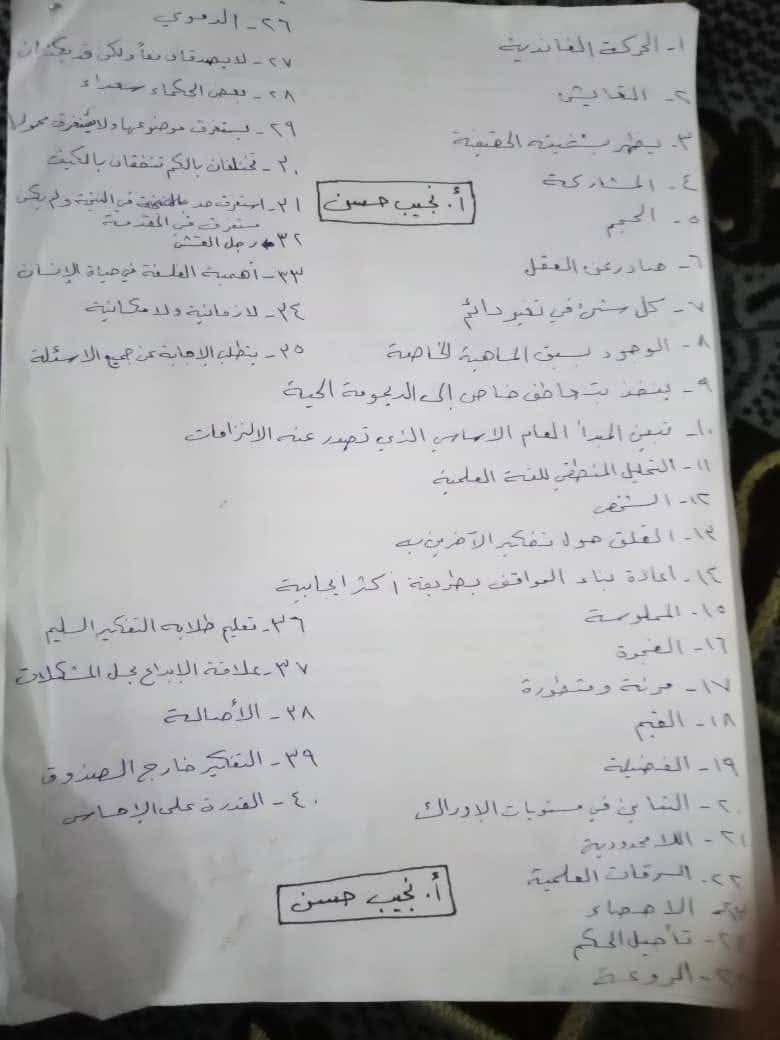 ١- الحركة الغاندية
٢- التعايش
٣- يظهر بشخصيته الحقيقية
٤- المشاركة
٥- الحجم
٦- صادر عن العقل
٧- كل شئ في تغير دائم
٨- الوجود يسبق الماهية الخاصة
٩- ينفذ بتعاطف خاص إلى الديمومة الحية
١٠- تبين المبدأ العام الأساسي الذي تصدر عنه الالتزامات
١١- التحليل المنطقي للغة العلمية
١٢- الشخص
١٣- القلق حول تفكير الآخرين به
١٤- اعادة بناء المواقف بطريقة أكثر ايجابية
١٥- الملموسة
١٦- الفجوة
١٧- مرنة ومتطورة
١٨- القيم
١٩- الفضيلة
٢٠- التباين في مستويات الإدراك
٢١- اللامحدودية
٢٢- السرقات العلمية
٢٣- الاحصاء
٢٤- تأجيل الحكم
٢٥- الروعة
٢٦- الدموي
٢٧- لا يصدقان معاً ولكن قد يكذبان
٢٨- بعض الحكماء سعداء
٢٩- يستغرق موضوعها ولا يستغرق محمولها
٣٠- تختلفان بالكم تتفقان بالكيف
٣١- استغرق حد في النتيجة ولم يكن
مستغرق في المقدمة
٣٢- رجل القش
٣٣- أهمية الفلسفة في حياة الإنسان
٣٤- لا زمانية ولا مكانية
٣٥- يتطلب الإجابة عن جميع الاسئلة
أ. نجيب حسن
٣٦- تعليم طلابه التفكير السليم
٣٧- علاقة الإبداع بحل المشكلات
٣٨- الأصالة
٣٩- التفكير خارج الصندوق
٤٠- القدرة على الإحساس
أ. نجيب حسن